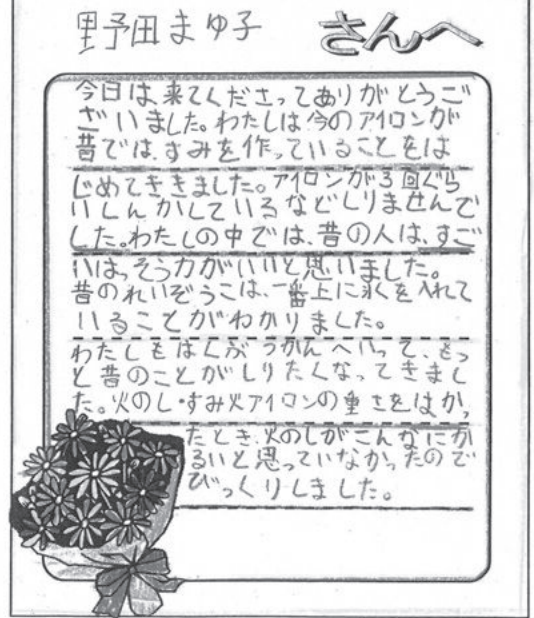 野田まゆ子 さんへ
今日は来てくださってありがとうご
ざいました。わたしは今のアイロンが
昔では、すみを作っていることをは
じめてききました。アイロンが3回ぐら
いしんかしているなどしりませんで
した。わたしの中では、昔の人は、すご
いはっそう力がいいと思いました。
昔のれいぞうこは、一番上に氷を入れて
いることがわかりました。
わたしもはくぶつかんへいって、もっ
と昔のことがしりたくなってきまし
た。火のし・すみ火アイロンの重さをはかっ
たとき、火のしがこんなにか
るいと思っていなかったので
びっくりしました。